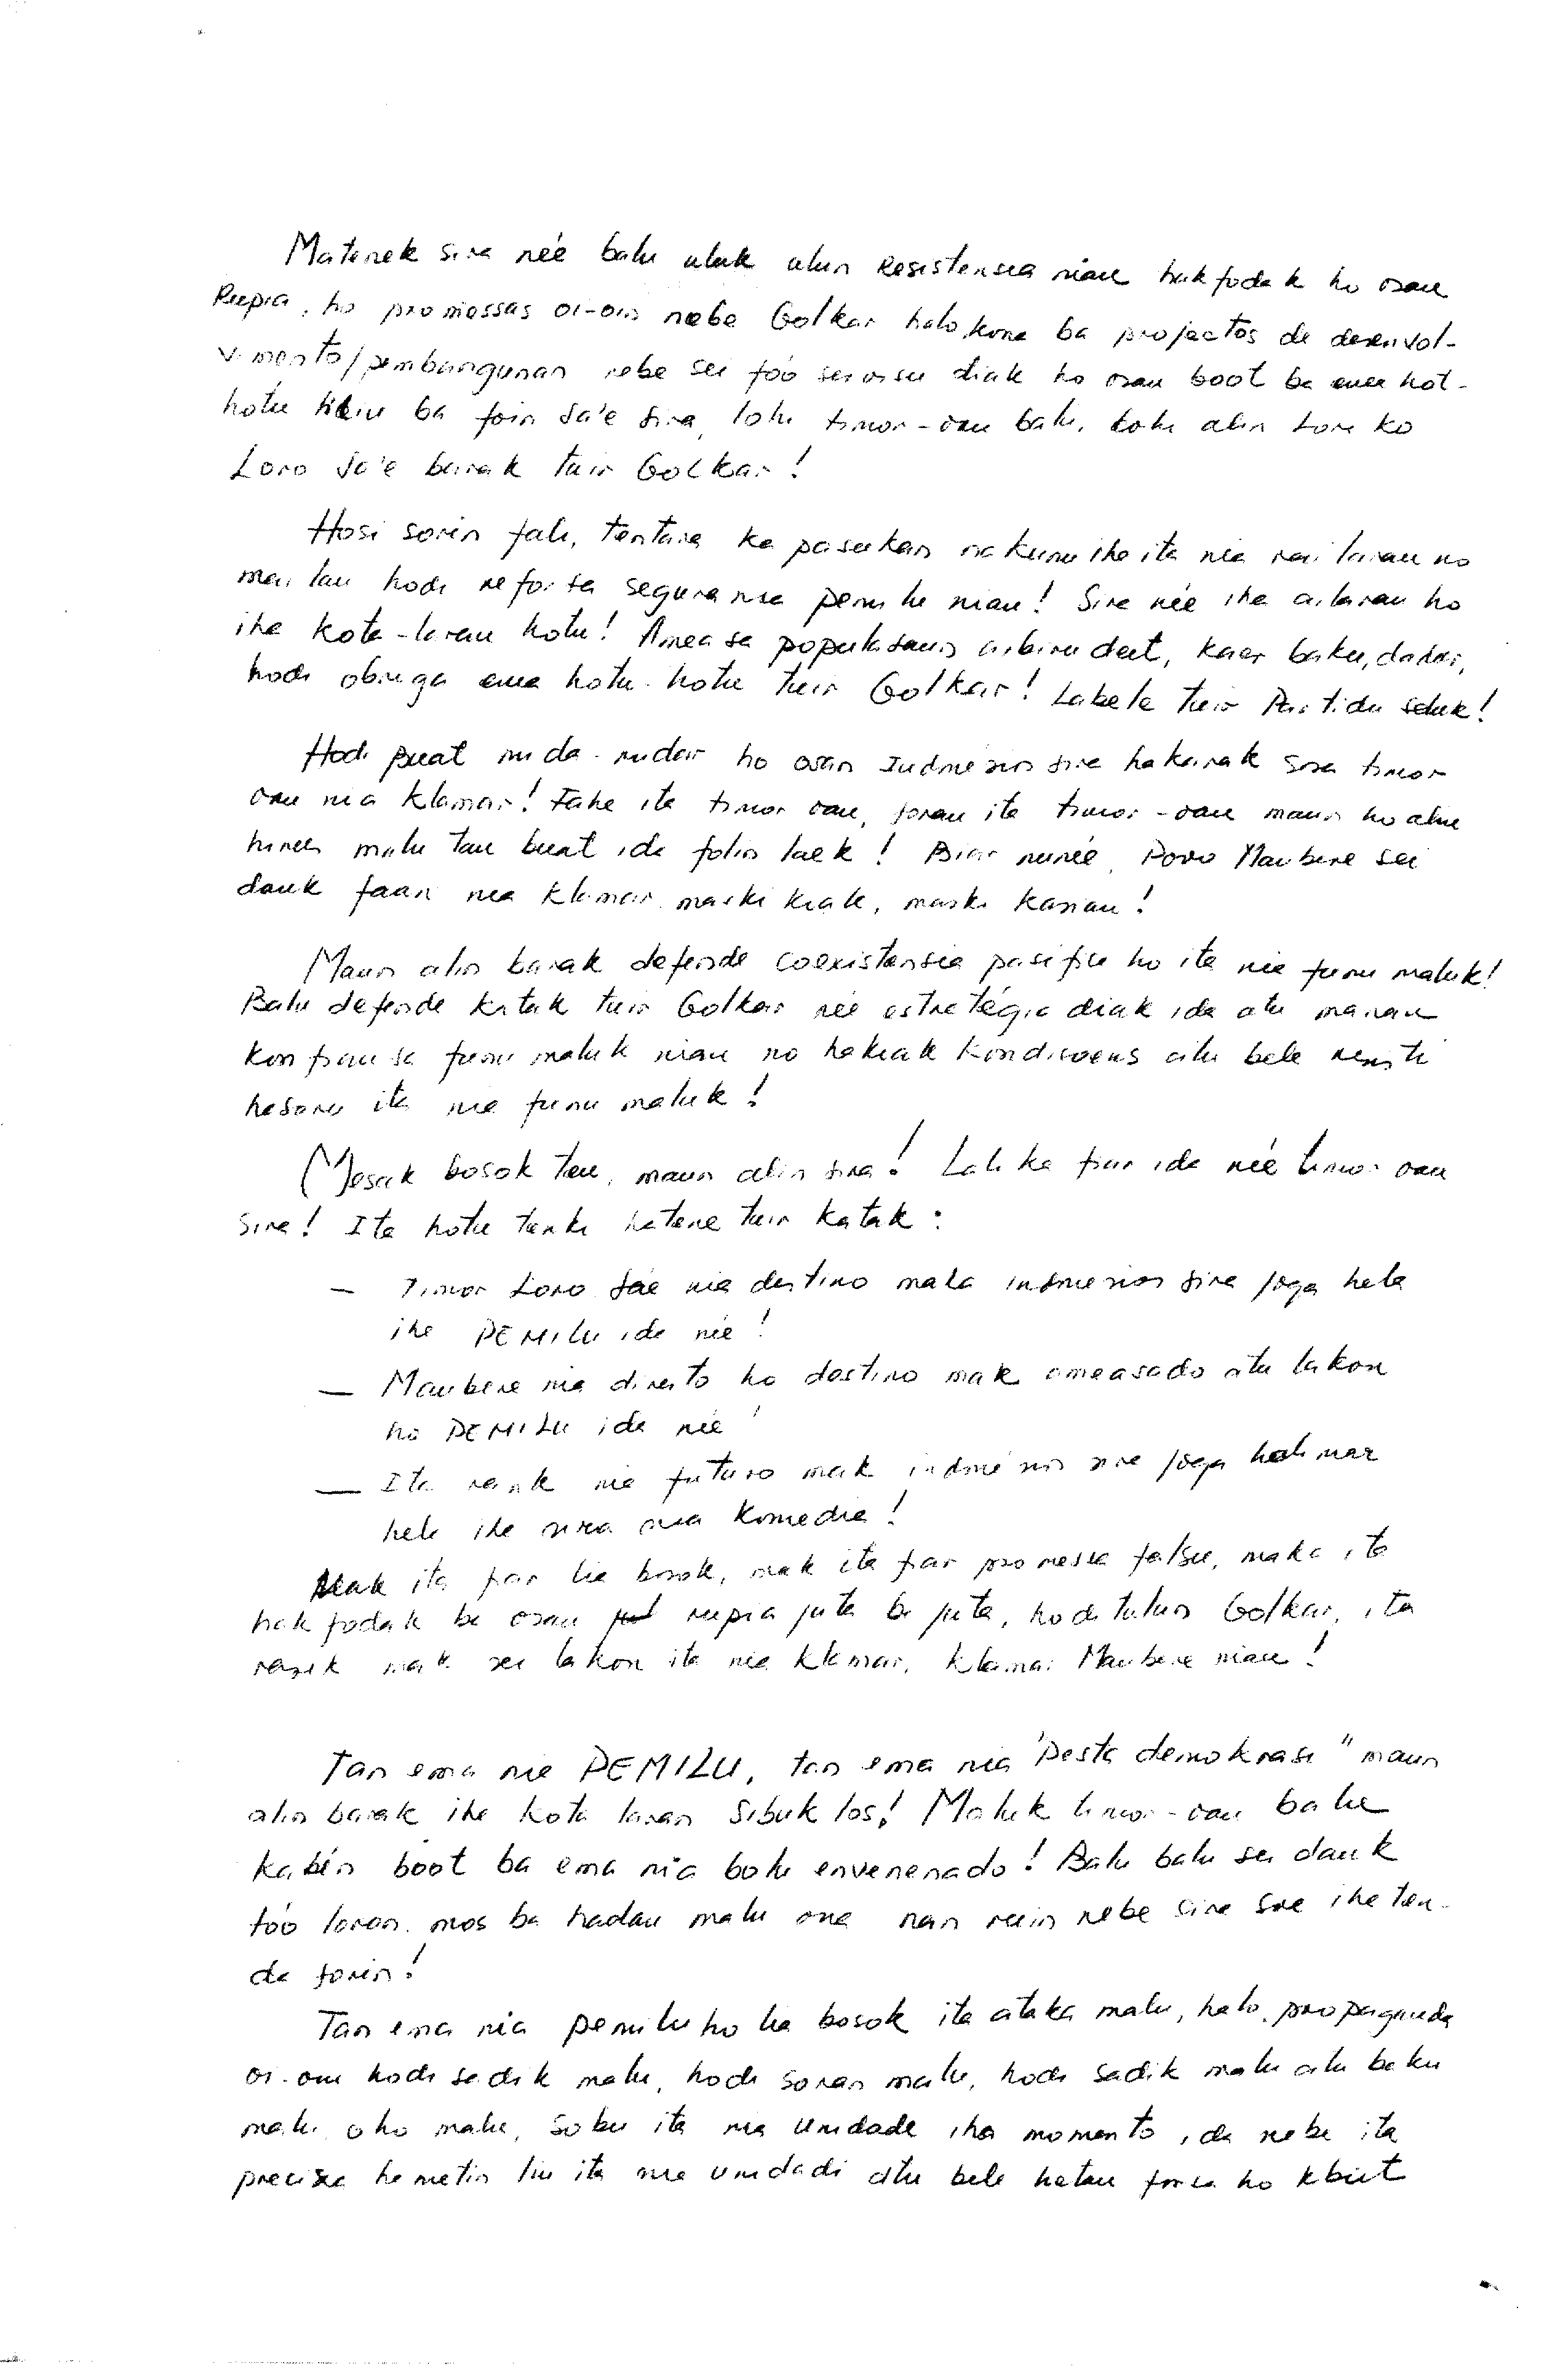 Matenek sira née balu uluk ulun Resistensia nian hakfodak ho osan
Rupia, ho promessas oi-oin nebe Golkar halo, kona ba projectos de desenvol-
vimento/pembangunan nebe sei fóo servisu diak ho osan boot ba ema hot-
hotu liu ba foin sa'e sira, lohi timor-oan balu, lohi alin Loro
Loro Sa'e barak tuir Golkar!
Hosi sorin falu, tentara ka pasukan nakunu iha ita nia rai laran no
mai tan hodi reforsa seguransa pemilu nian! Sira née iha ailaran ho
iha kota-laran hotu! Ameasa populasaun arbiru deit, kaer baku, dadur,
hodi obriga ema hotu-hotu tuir Golkar! Labele tuir Partidu seluk!
Hodi buat nuda-nudar ho osan Indonésio sira hakarak sosa timor
oan nia klamar! Fahe ita timor oan, soran ita timor-oan maun ho alin
hirus malu tan buat ida folin laek! Biar nunée, Povo Maubere sei
dauk faan nia klamar, maski kiak, maski kasian!
Maun alin barak defende coexistensia pasifiku ho ita nia funu maluk!
Balu defende katak tuir Golkar née estratégia diak ida atu manan
konfiansa funu maluk nian no hakiak kondisoens atu bele resisti
hasoru ita nia funu maluk!
Mesak bosok teu, maun alin sira! Lalika fiar ida née timor oan
Sira! Ita hotu tenki hatene tuir katak:
— Timor Loro Sáe nia destino maka indonesios sira joga hela
iha PEMILU ida née!
— Maubere nia direito ho destino mak ameasado atu lakon
ho PEMILU ida née!
— Ita rasik nia futuro mak indonésios sira joga halimar
hela iha sira nia komedia!
Mak ita fiar lia bosok, mak ita fiar promessa falsu, maka ita
hakfodak ba osan rupia juta ba juta, hodi tulun Golkar, ita
rasik mak sei lakon ita nia klamar, klamar Maubere nian!
Tan ema nia PEMILU, tan ema nia "Pesta demokrasi" maun
alin barak iha kota laran sibuk los! Maluk timor-oan balu
kabén boot ba ema nia bolu envenenado! Balu balu sei dauk
tóo loron, mos ba hadau malu ona nan ruin nebe sira soe iha ten-
da sorin!
Tan ema nia pemilu ho lia bosok ita ataka malu, halo propaganda
oi-oin hodi sadik malu, hodi soran malu, hodi sadik malu atu baku
malu, oho malu, sobu ita nia Unidade iha momento ida nebe ita
precisa hametin liu ita nia unidadi atu bele hetan forsa ho kbiit